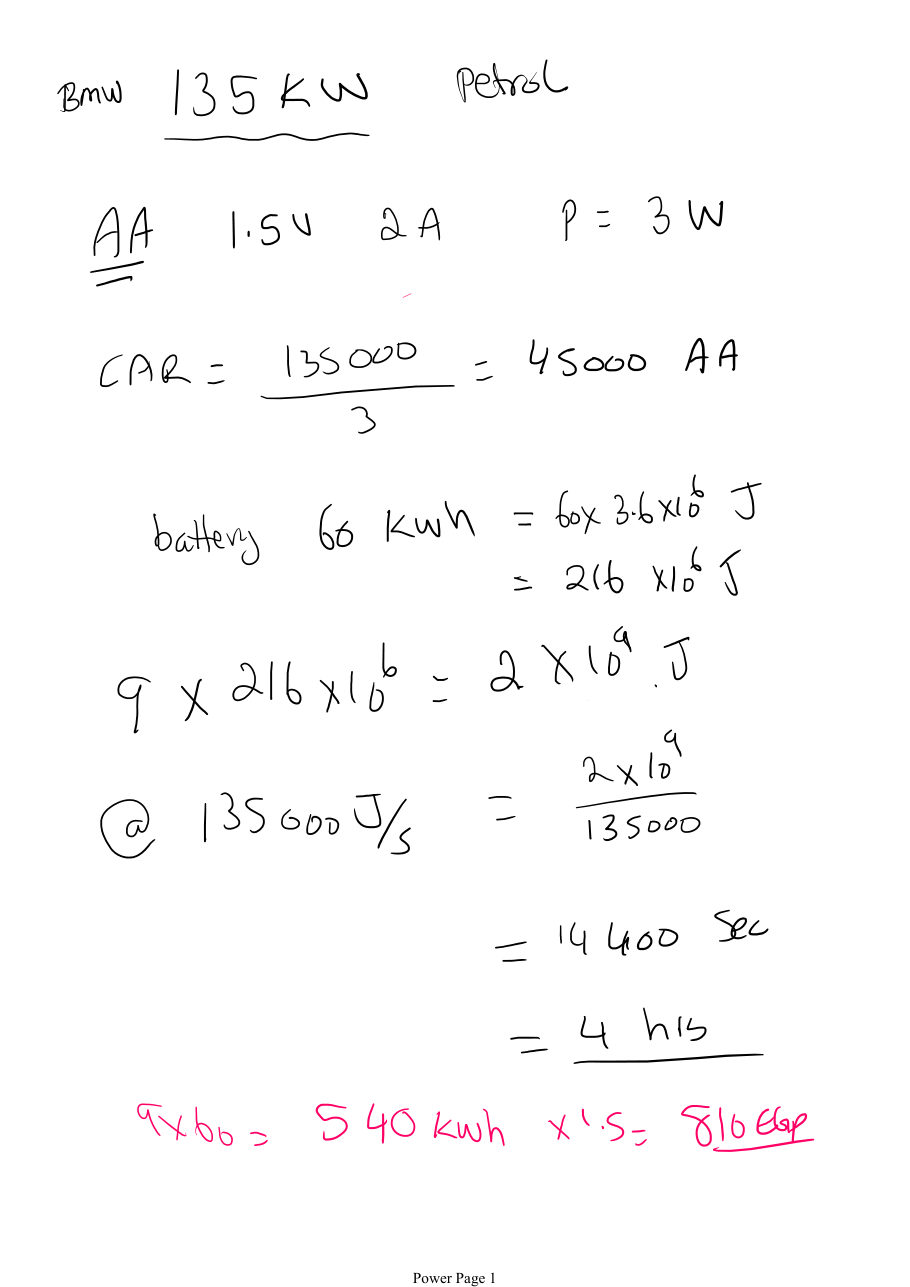 BMW 135 KW Petrol
AA 1.5V 2A P = 3 W
CAR = 135000 / 3 = 45000 AA
battery 60 Kwh = 60x 3.6x10⁶ J
= 216 x10⁶ J
9 x 216 x10⁶ = 2 x10⁹ J
@ 135000 J/s = 2x10⁹ / 135000
= 14400 Sec
= 4 hrs
9x60 = 540 kwh x1.5= 810 Egp
Power Page 1